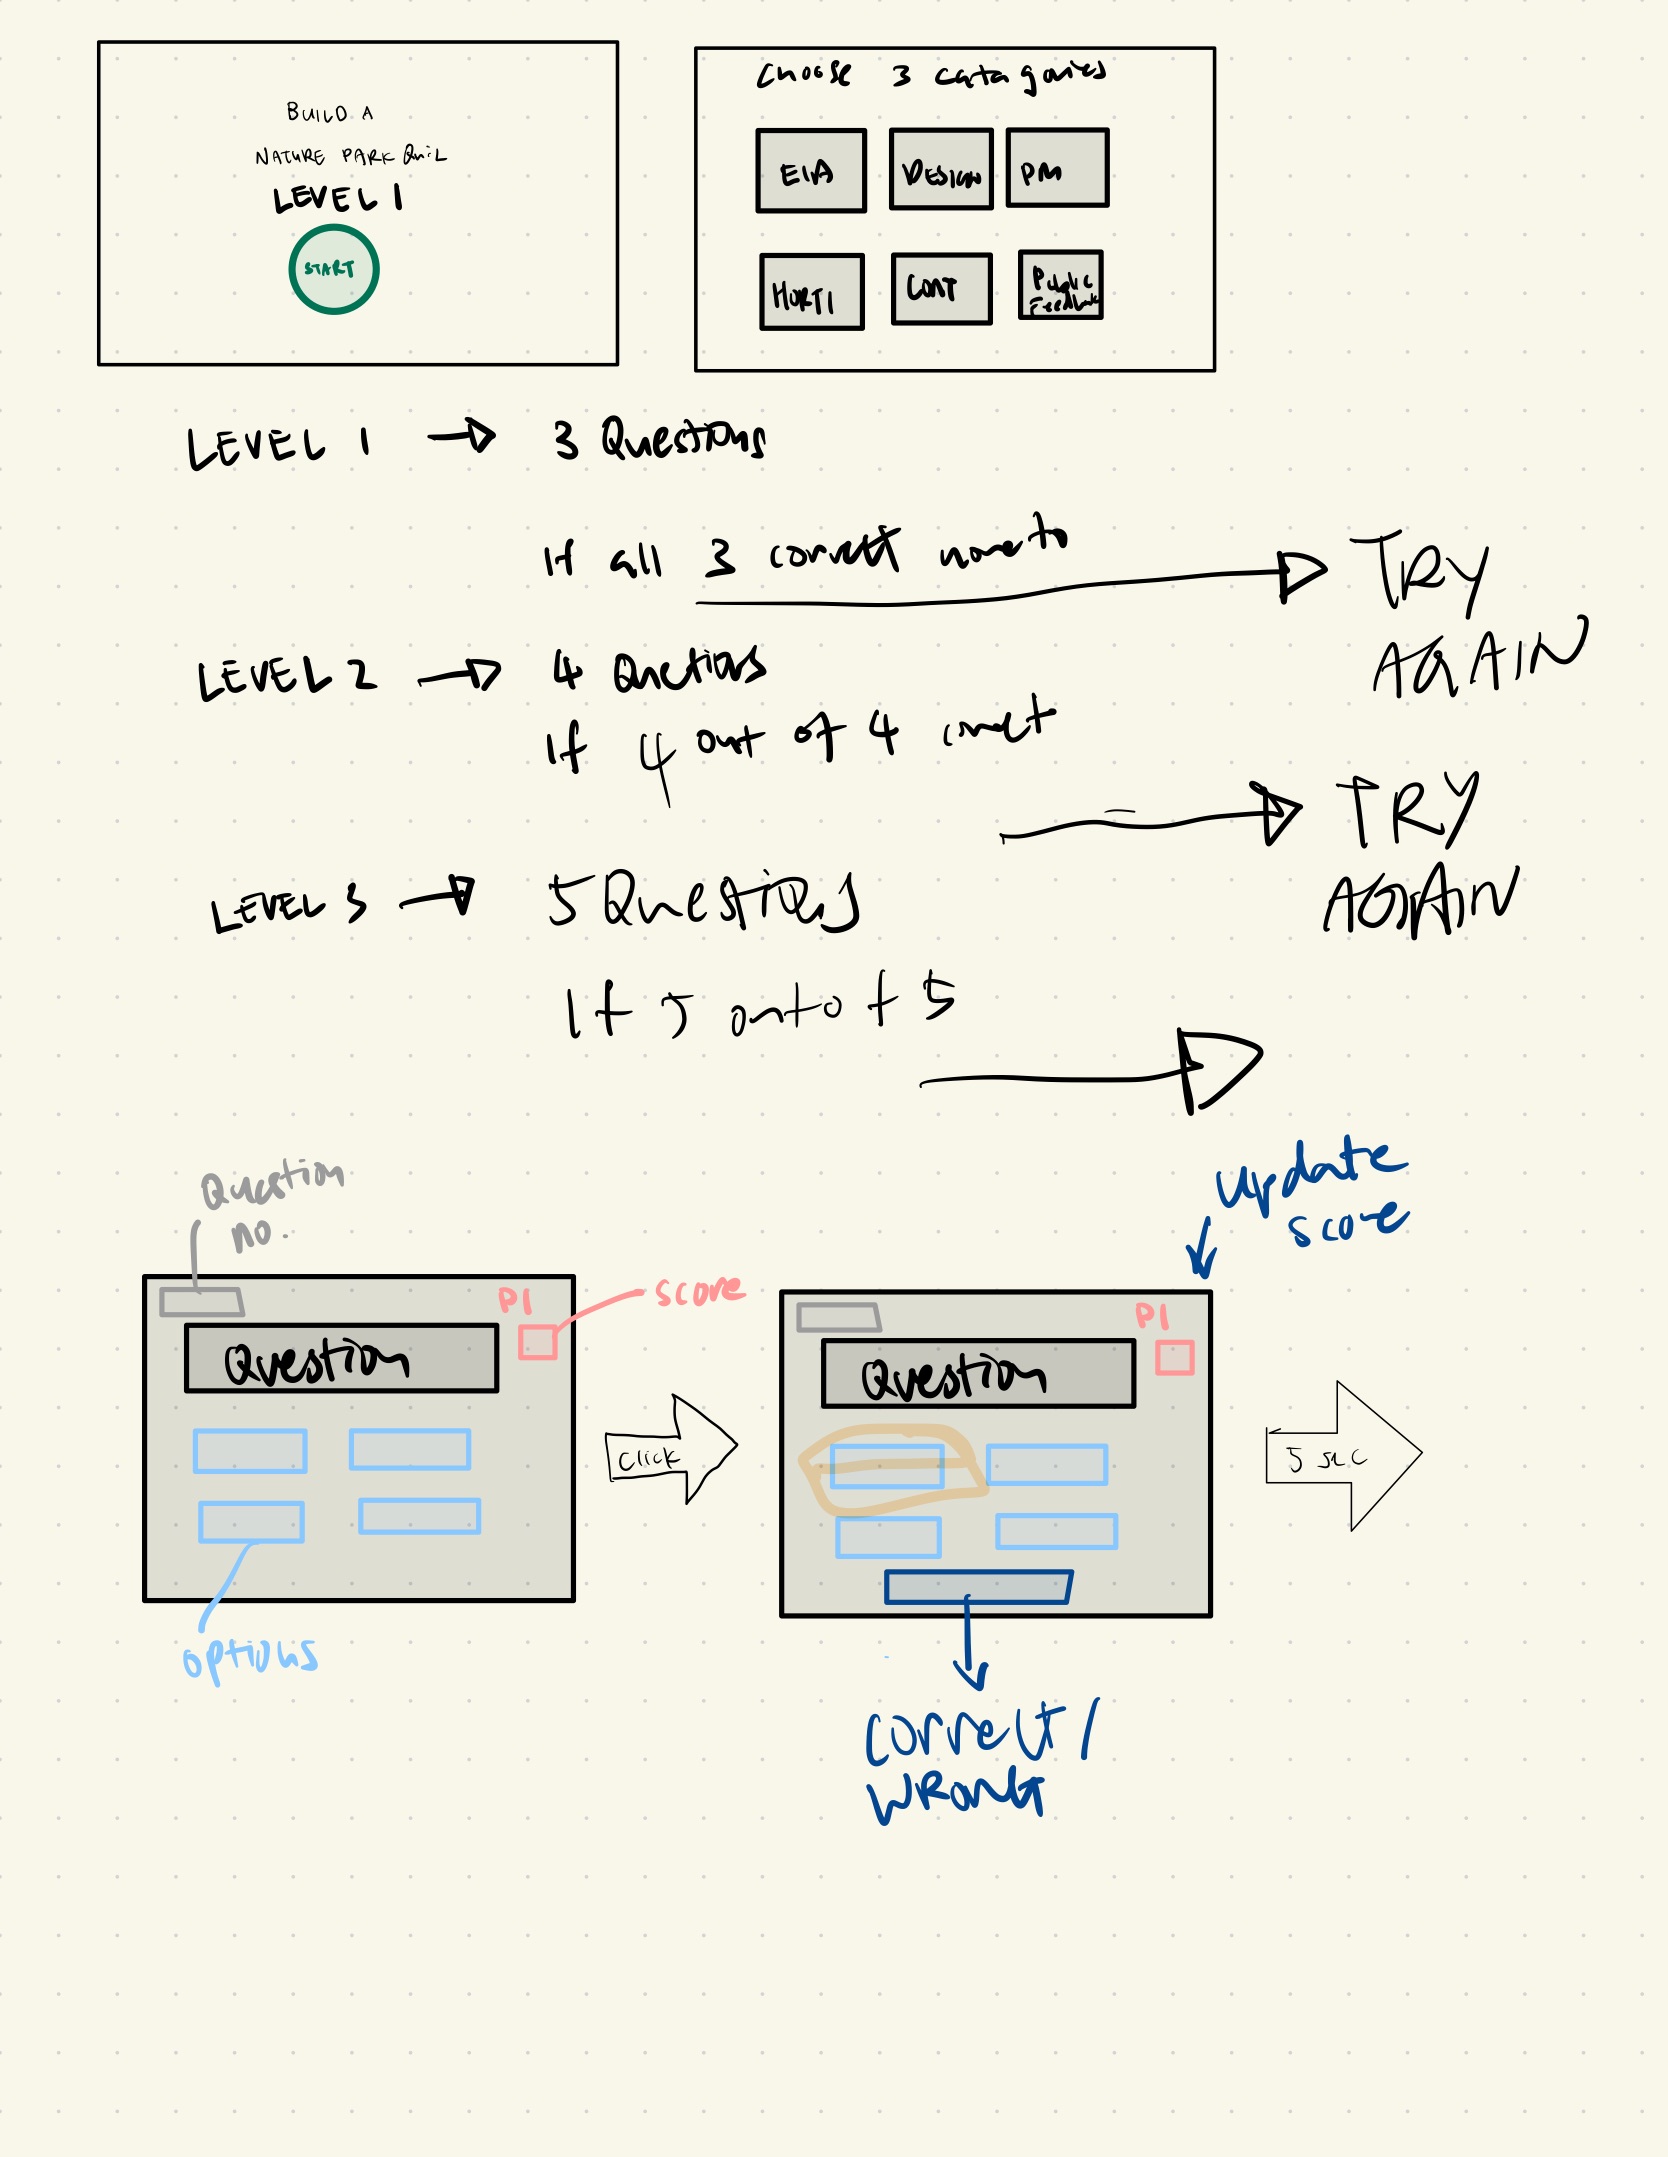 BUILD A
NATURE PARK Quiz
LEVEL 1
START
Choose 3 catagories
EIA
DESIGN
PM
HORTI
CONT
Public
Feedback
LEVEL 1
3 Questions
If all 3 correct move to
TRY
AGAIN
LEVEL 2
4 Quetions
If 4 out of 4 corect
TRY
AGAIN
LEVEL 3
5 Questions
If 5 out of 5
Question
no.
P1
score
Question
options
click
update
score
P1
Question
correct/
WRONG
5 sec